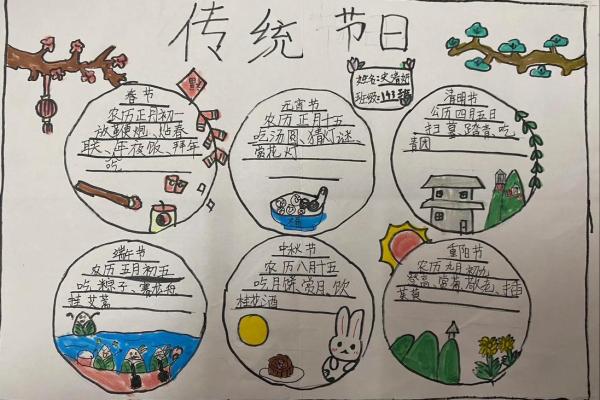 传统节日
姓名:
班级:
春节
农历正月初一
放鞭炮、贴春
联、年夜饭、拜年
元宵节
农历正月十五
吃汤圆、猜灯谜、
赏花灯
清明节
公历四月五日
扫墓、踏青、吃
青团
端午节
农历五月初五
吃粽子、赛龙舟
挂艾蒿
中秋节
农历八月十五
吃月饼、赏月、饮
桂花酒
重阳节
农历九月初九
登高、赏菊、敬老、插
茱萸